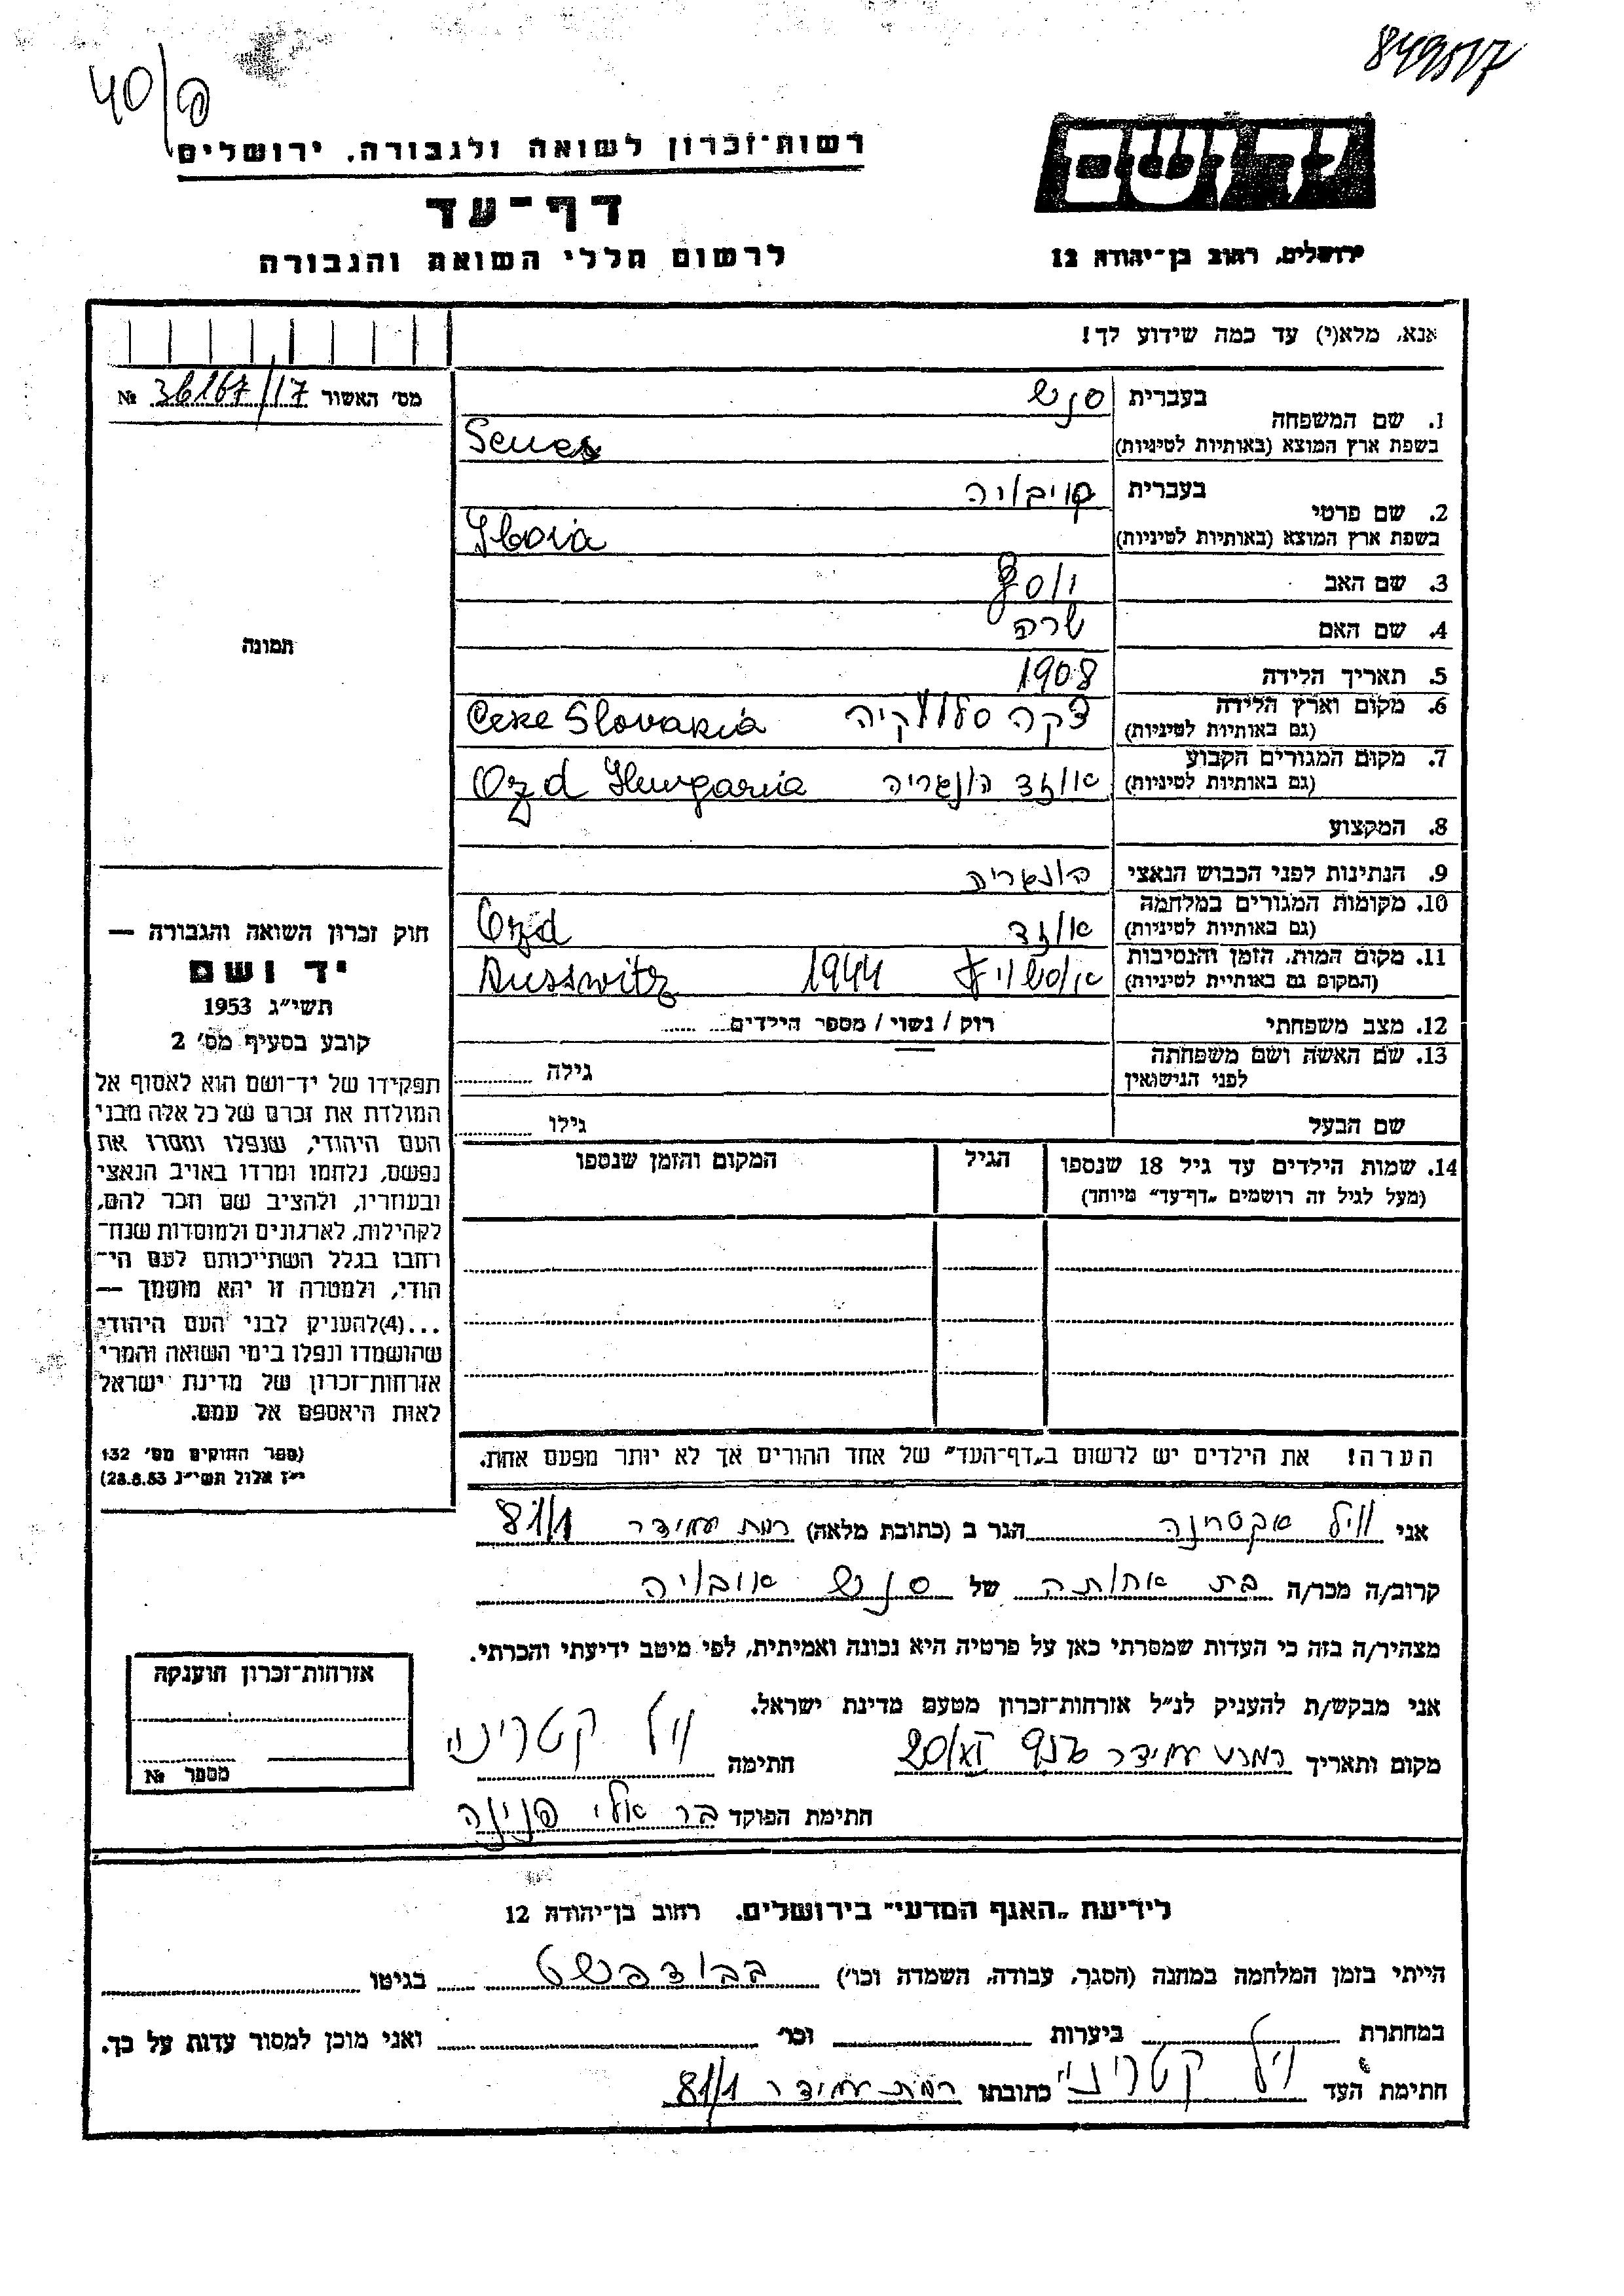 849517
40/פ
רשות־זכרון לשואה ולגבורה, ירושלים
יד ושם
דף־עד
לרשום חללי השואה והגבורה
ירושלים, רחוב בן־יהודה 12
אנא, מלא(י) עד כמה שידוע לך!
מס' האשור 36167/17 №
1. שם המשפחה בעברית סנש
בשפת ארץ המוצא (באותיות לטיניות) Senes
2. שם פרטי בעברית
בשפת ארץ המוצא (באותיות לטיניות) Iboia
3. שם האב יוסף
4. שם האם שרה
5. תאריך הלידה 1908
6. מקום וארץ הלידה
(גם באותיות לטיניות) צקה סלובקיה Ceke Slovakia
7. מקום המגורים הקבוע
(גם באותיות לטיניות) אוזד הונגריה Ozd Hungaria
8. המקצוע
9. הנתינות לפני הכבוש הנאצי הונגריה
10. מקומות המגורים במלחמה
(גם באותיות לטיניות) אוזד Ozd
11. מקום המות, הזמן והנסיבות
(המקום גם באותיית לטיניות) אוסשויץ 1944 Ausswitz
12. מצב משפחתי רוק / נשוי / מספר הילדים
13. שם האשה ושם משפחתה
לפני הנישואין גילה
שם הבעל גילו
14. שמות הילדים עד גיל 18 שנספו הגיל המקום והזמן שנספו
(מעל לגיל זה רושמים „דף־עד" מיוחד)
הערה! את הילדים יש לרשום ב„דף־העד" של אחד ההורים אך לא יותר מפעם אחת.
תמונה
חוק זכרון השואה והגבורה —
יד ושם
תשי"ג 1953
קובע בסעיף מס' 2
תפקידו של יד־ושם הוא לאסוף אל
המולדת את זכרם של כל אלה מבני
העם היהודי, שנפלו ומסרו את
נפשם, נלחמו ומרדו באויב הנאצי
ובעוזריו, ולהציב שם וזכר להם,
לקהילות, לארגונים ולמוסדות שנח־
רחבו בגלל השתייכותם לעם הי־
הודי, ולמטרה זו יהא מוסמך —
...(4)להעניק לבני העם היהודי
שהושמדו ונפלו בימי השואה והמרי
אזרחות־זכרון של מדינת ישראל
לאות היאספם אל עמם.
(ספר החוקים מס' 132
י"ז אלול תשי"ג 28.8.53)
אני וייל אקטרינה הגר ב (כתובת מלאה) רמת עמידר 81/1
קרוב/ה מכר/ה בת אחותה של סנש אובויה
מצהיר/ה בזה כי העדות שמסרתי כאן על פרטיה היא נכונה ואמיתית, לפי מיטב ידיעתי והכרתי.
אני מבקש/ת להעניק לנ"ל אזרחות־זכרון מטעם מדינת ישראל.
מקום ותאריך רמת עמידר חתימה וייל קטרינ
חתימת הפוקד בר אלי פנינה
אזרחות־זכרון הוענקה
מספר №
לידיעת „האגף המדעי" בירושלים. רחוב בן־יהודה 12
הייתי בזמן המלחמה במחנה (הסגר, עבודה, השמדה וכו') בבודפשט בגיטו
במחתרת ביערות וכו' ואני מוכן למסור עדות על כך.
חתימת העד וייל קטרינ כתובתו רמת עמידר 81/1